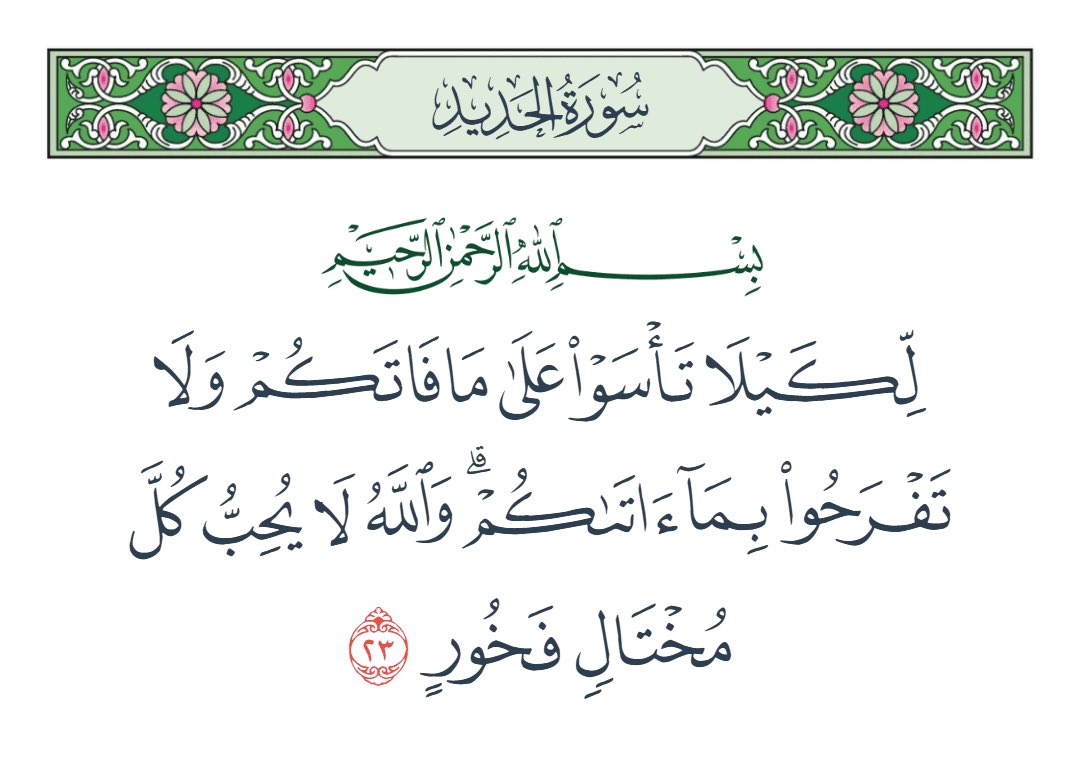 سُورَةُ الحَدِيدِ
بِسْمِ ٱللَّهِ ٱلرَّحْمَٰنِ ٱلرَّحِيمِ
لِّكَيْلَا تَأْسَوْا۟ عَلَىٰ مَا فَاتَكُمْ وَلَا
تَفْرَحُوا۟ بِمَآ ءَاتَىٰكُمْ ۗ وَٱللَّهُ لَا يُحِبُّ كُلَّ
مُخْتَالٍ فَخُورٍ ٢٣